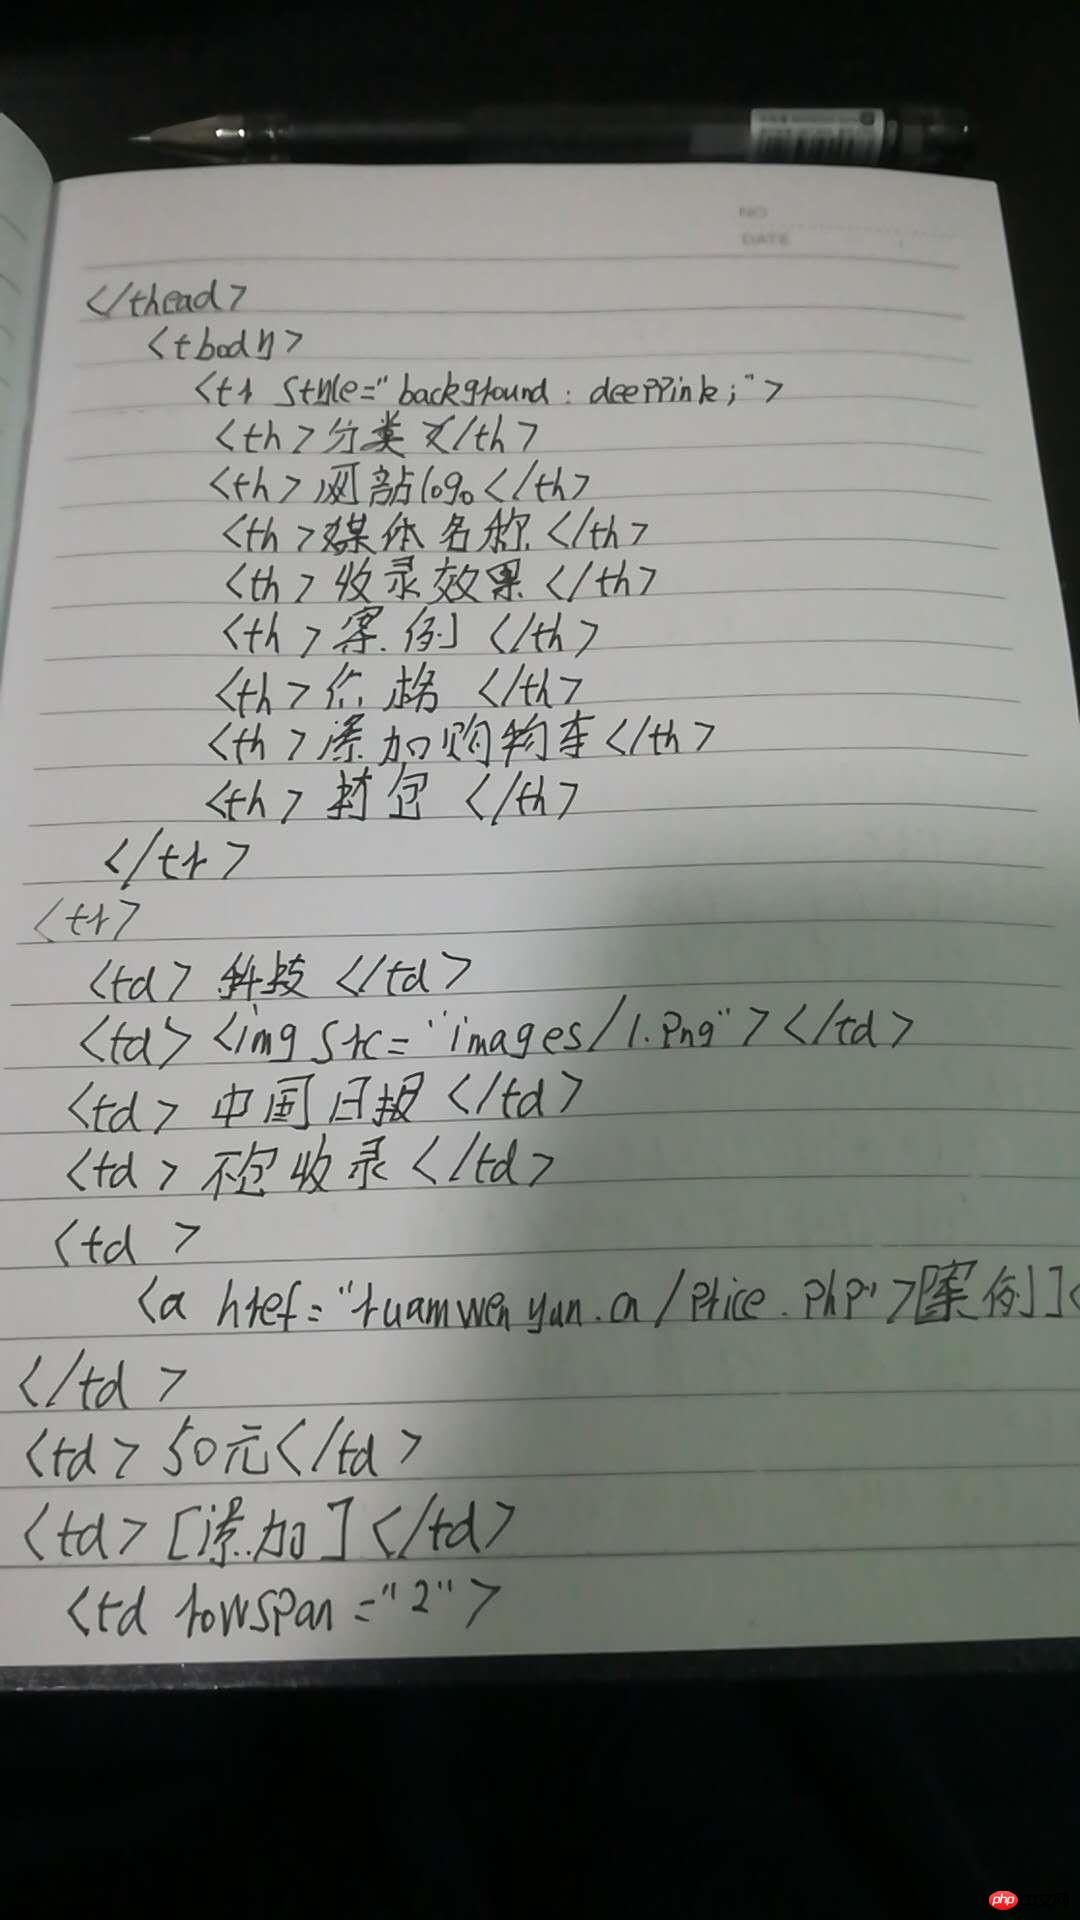 NO
DATE
</thead>
<tbody>
<tr style="background: deeppink;">
<th>分类</th>
<th>网站logo</th>
<th>媒体名称</th>
<th>收录效果</th>
<th>案例</th>
<th>价格</th>
<th>添加购物车</th>
<th>封包</th>
</tr>
<tr>
<td>科技</td>
<td><img src="images/1.png"></td>
<td>中国日报</td>
<td>不包收录</td>
<td>
<a href="ruanwenyun.cn/price.php">[案例]<
</td>
<td>50元</td>
<td>[添加]</td>
<td rowspan="2">
php